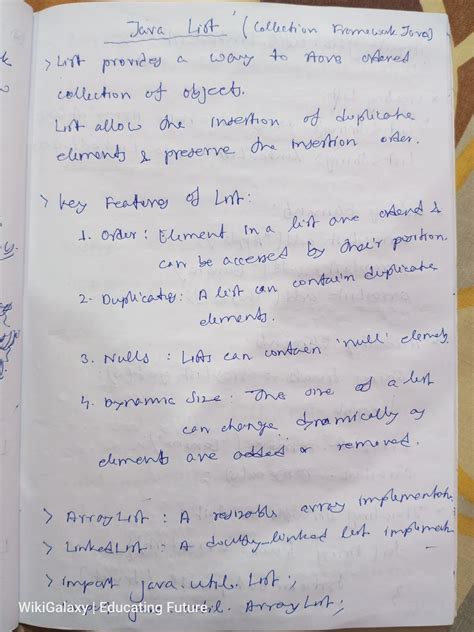 Java List (Collection Framework Java)
> List provides a way to store ordered
collection of object.
List allow the insertion of duplicate
elements & preserve the insertion order.
> Key Features of List:
1. Order: Element in a list are ordered &
can be accessed by their position.
2. Duplicates: A list can contain duplicate
elements.
3. Nulls : Lists can contain 'null' elements
4. Dynamic Size: The size of a list
can change dynamically as
elements are added or removed.
> ArrayList : A resizable array implementatn.
> LinkedList : A doubly-linked list implement
> import java.util.List;
ArrayList;
WikiGalaxy | Educating Future.